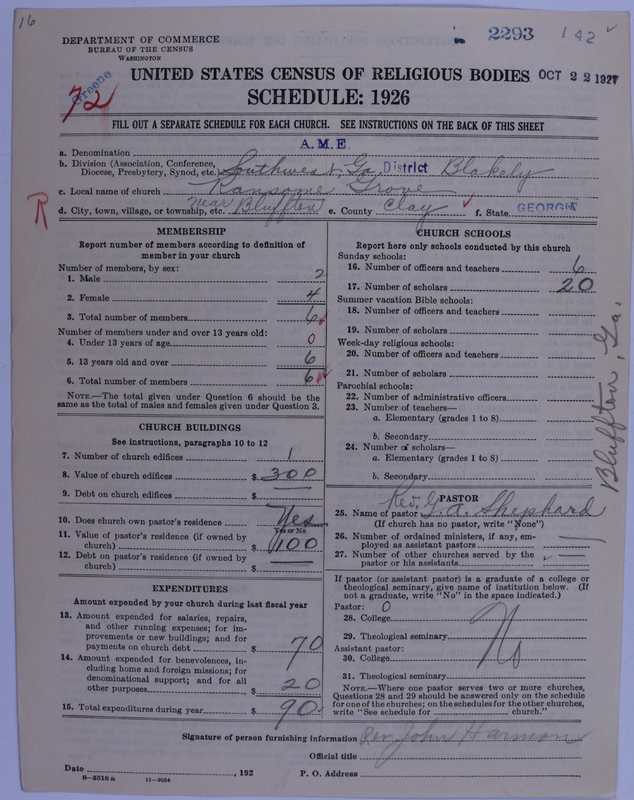 16
2293 142
DEPARTMENT OF COMMERCE
BUREAU OF THE CENSUS
WASHINGTON
Greene
72
UNITED STATES CENSUS OF RELIGIOUS BODIES OCT 22 1927
SCHEDULE: 1926
FILL OUT A SEPARATE SCHEDULE FOR EACH CHURCH. SEE INSTRUCTIONS ON THE BACK OF THIS SHEET
a. Denomination A.M.E.
b. Division (Association, Conference, Diocese, Presbytery, Synod, etc. Southwest, Ga. District Blakely
c. Local name of church Ransome Grove
R
d. City, town, village, or township, etc. near Bluffton e. County Clay f. State GEORGIA
MEMBERSHIP
Report number of members according to definition of
member in your church
Number of members, by sex:
1. Male 2
2. Female 4
3. Total number of members 6
Number of members under and over 13 years old:
4. Under 13 years of age 0
5. 13 years old and over 6
6. Total number of members 6
NOTE.—The total given under Question 6 should be the
same as the total of males and females given under Question 3.
CHURCH BUILDINGS
See instructions, paragraphs 10 to 12
7. Number of church edifices 1
8. Value of church edifices $ 300
9. Debt on church edifices $
10. Does church own pastor's residence Yes
Yes or No
11. Value of pastor's residence (if owned by
church) $ 100
12. Debt on pastor's residence (if owned by
church) $
EXPENDITURES
Amount expended by your church during last fiscal year
13. Amount expended for salaries, repairs,
and other running expenses; for im-
provements or new buildings; and for
payments on church debt $ 70
14. Amount expended for benevolences, in-
cluding home and foreign missions; for
denominational support; and for all
other purposes $ 20
15. Total expenditures during year $ 90
CHURCH SCHOOLS
Report here only schools conducted by this church
Sunday schools:
16. Number of officers and teachers 6
17. Number of scholars 20
Summer vacation Bible schools:
18. Number of officers and teachers
19. Number of scholars
Week-day religious schools:
20. Number of officers and teachers
21. Number of scholars
Parochial schools:
22. Number of administrative officers
23. Number of teachers—
a. Elementary (grades 1 to 8)
b. Secondary
24. Number of scholars—
a. Elementary (grades 1 to 8)
b. Secondary
Bluffton, Ga.
PASTOR
25. Name of pastor Rev. G. A. Shephard
(If church has no pastor, write "None")
26. Number of ordained ministers, if any, em-
ployed as assistant pastors
27. Number of other churches served by the
pastor or his assistants
If pastor (or assistant pastor) is a graduate of a college or
theological seminary, give name of institution below. (If
not a graduate, write "No" in the space indicated.)
Pastor: 0
28. College
29. Theological seminary No
Assistant pastor:
30. College
31. Theological seminary
NOTE.—Where one pastor serves two or more churches,
Questions 28 and 29 should be answered only on the schedule
for one of the churches; on the schedules for the other churches,
write "See schedule for church."
Signature of person furnishing information Rev. John Harmon
Official title
Date , 192 P. O. Address
8—5518 a 11—9034